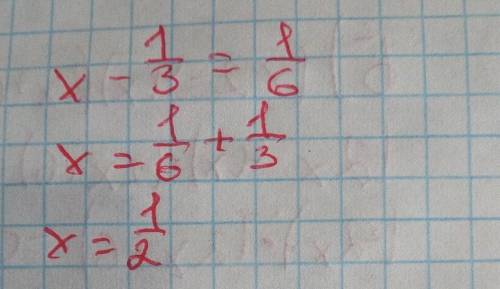 x - 1/3 = 1/6
x = 1/6 + 1/3
x = 1/2